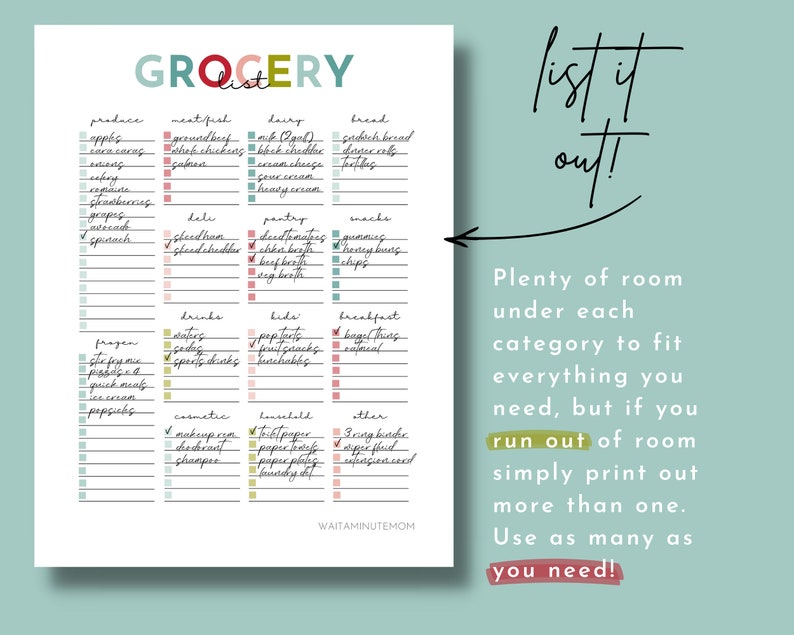 GROCERY
list
produce
apples
cara caras
onions
celery
romaine
strawberries
grapes
avocado
spinach
frozen
stir fry mix
pizzas x 4
quick meals
ice cream
popsicles
meat/fish
ground beef
whole chickens
salmon
deli
sliced ham
sliced cheddar
drinks
waters
sodas
sports drinks
cosmetic
makeup rem.
deodorant
shampoo
dairy
milk (2 gall)
block cheddar
cream cheese
sour cream
heavy cream
pantry
diced tomatoes
chkn. broth
beef broth
veg. broth
kids'
pop tarts
fruit snacks
lunchables
household
toilet paper
paper towels
paper plates
laundry det.
bread
sndwch bread
dinner rolls
tortillas
snacks
gummies
honey buns
chips
breakfast
bagel thins
oatmeal
other
3 ring binder
wiper fluid
extension cord
WAITAMINUTEMOM
list it
out!
Plenty of room
under each
category to fit
everything you
need, but if you
run out of room
simply print out
more than one.
Use as many as
you need!